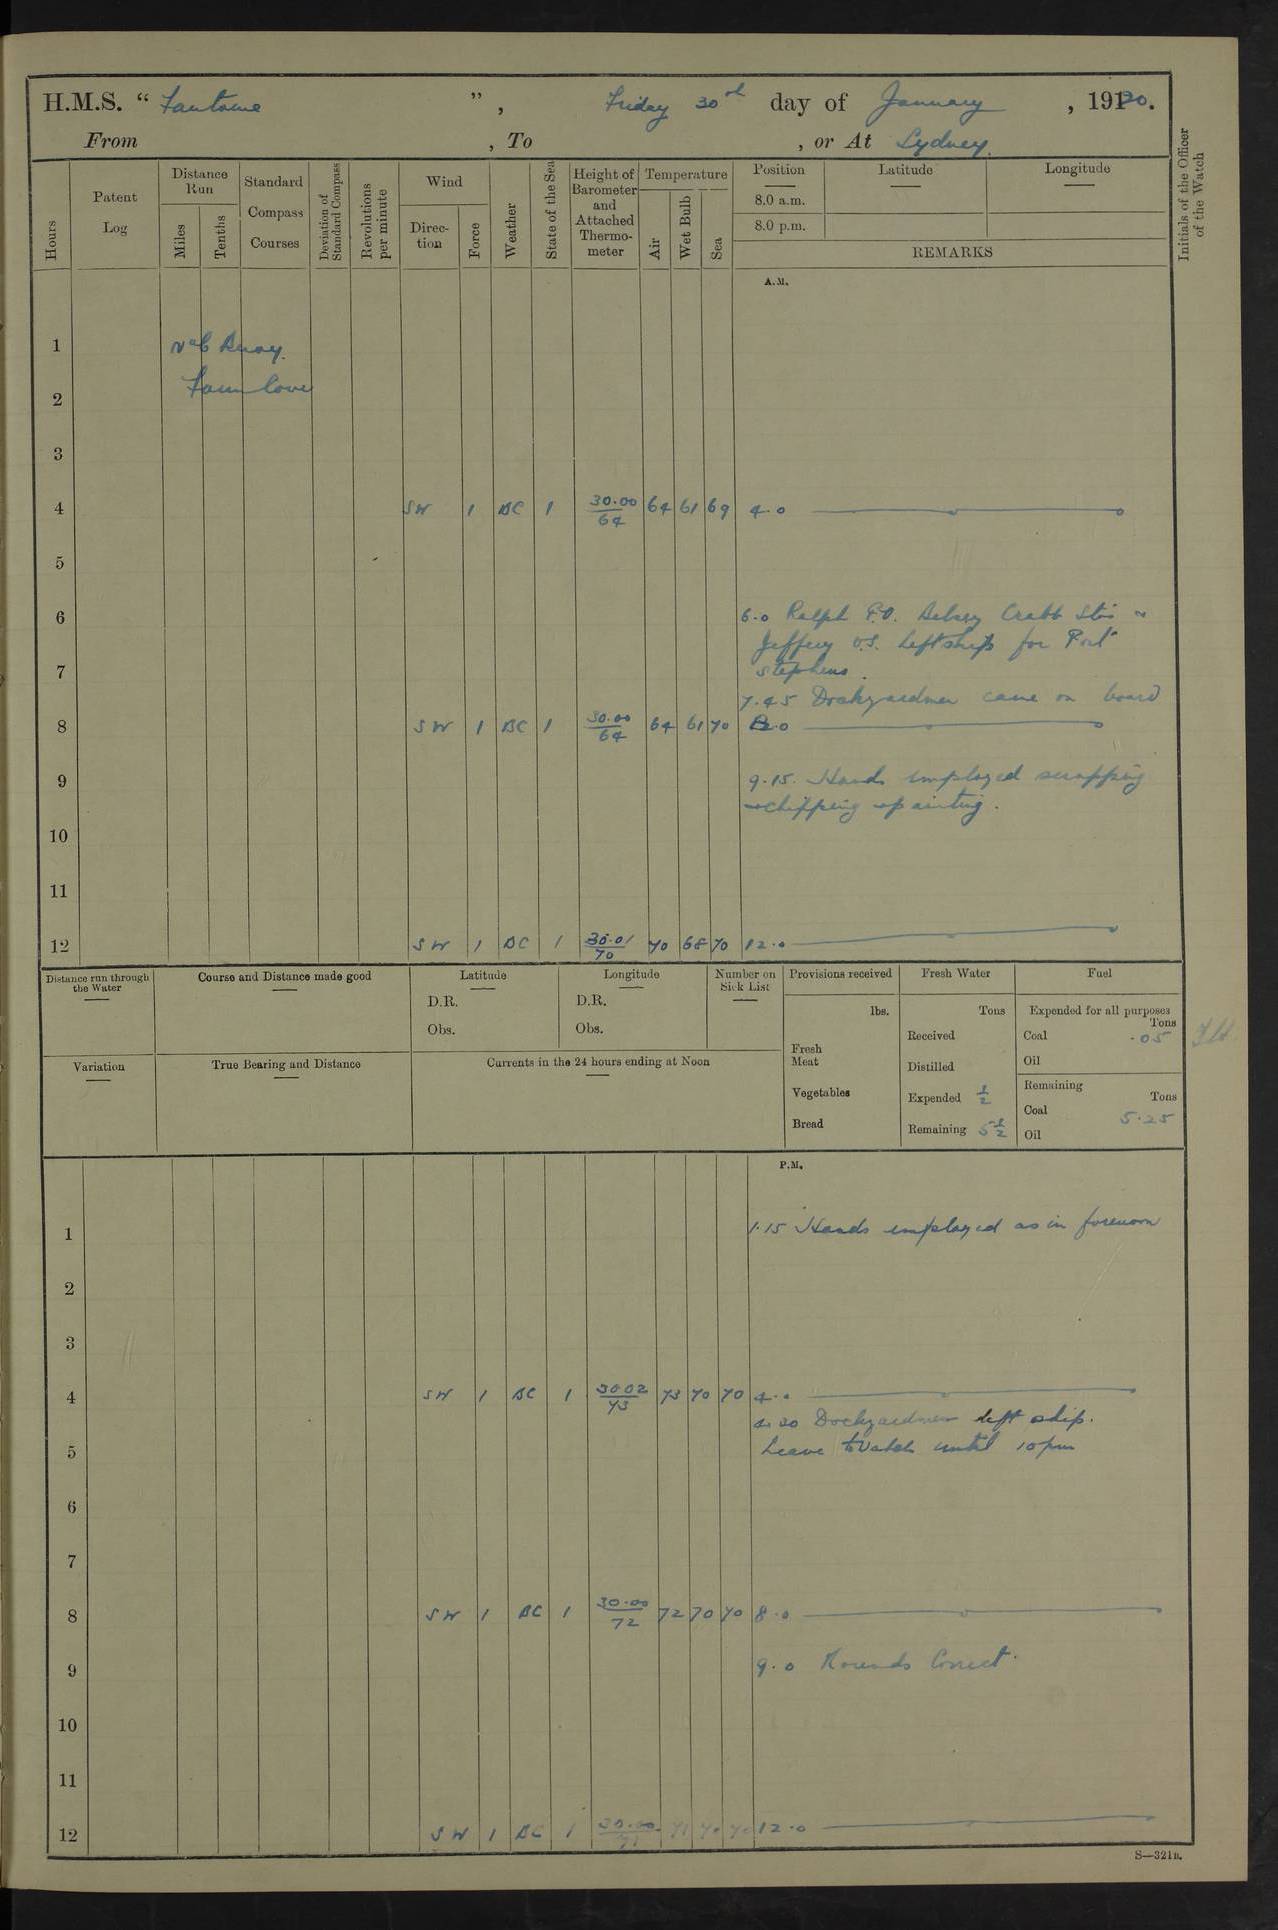 H.M.S. “ Fantome ” , Friday 30th day of January , 1920.
From , To , or At Sydney.
Hours
Patent Log
Distance Run
Miles
Tenths
Standard Compass Courses
Deviation of Standard Compass
Revolutions per minute
Wind
Direction
Force
Weather
State of the Sea
Height of Barometer and Attached Thermometer
Temperature
Air
Wet Bulb
Sea
Position
8.0 a.m.
8.0 p.m.
Latitude
Longitude
REMARKS
Initials of the Officer of the Watch
A.M.
1 No 6 Buoy.
2 Farm Cove
3
4 SW 1 BC 1 30.00/64 64 61 69 4.0
5
6 6.0 Ralph P.O. Crabb Sto
Jeffery O.S. left ship for Port
7 Stephens.
7.45 Dockyardmen came on board
8 SW 1 BC 1 30.00/64 64 61 70 8.0
9 9.15. Hands employed scrapping
chipping painting.
10
11
12 SW 1 BC 1 30.01/70 70 68 70 12.0
Distance run through the Water
Course and Distance made good
Latitude
D.R.
Obs.
Longitude
D.R.
Obs.
Number on Sick List
Provisions received
lbs.
Fresh Meat
Vegetables
Bread
Fresh Water
Tons
Received
Distilled
Expended 1/2
Remaining 5 1/2
Fuel
Expended for all purposes
Tons
Coal .05
Oil
Remaining
Tons
Coal 5.25
Oil
Variation
True Bearing and Distance
Currents in the 24 hours ending at Noon
P.M.
1 1.15 Hands employed as in forenoon
2
3
4 SW 1 BC 1 30.02/73 73 70 70 4.0
4.30 Dockyardmen left ship.
5 Leave to Watch until 10pm
6
7
8 SW 1 BC 1 30.00/72 72 70 70 8.0
9 9.0 Rounds Correct.
10
11
12 SW 1 BC 1 30.00/71 71 70 70 12.0
S—321B.